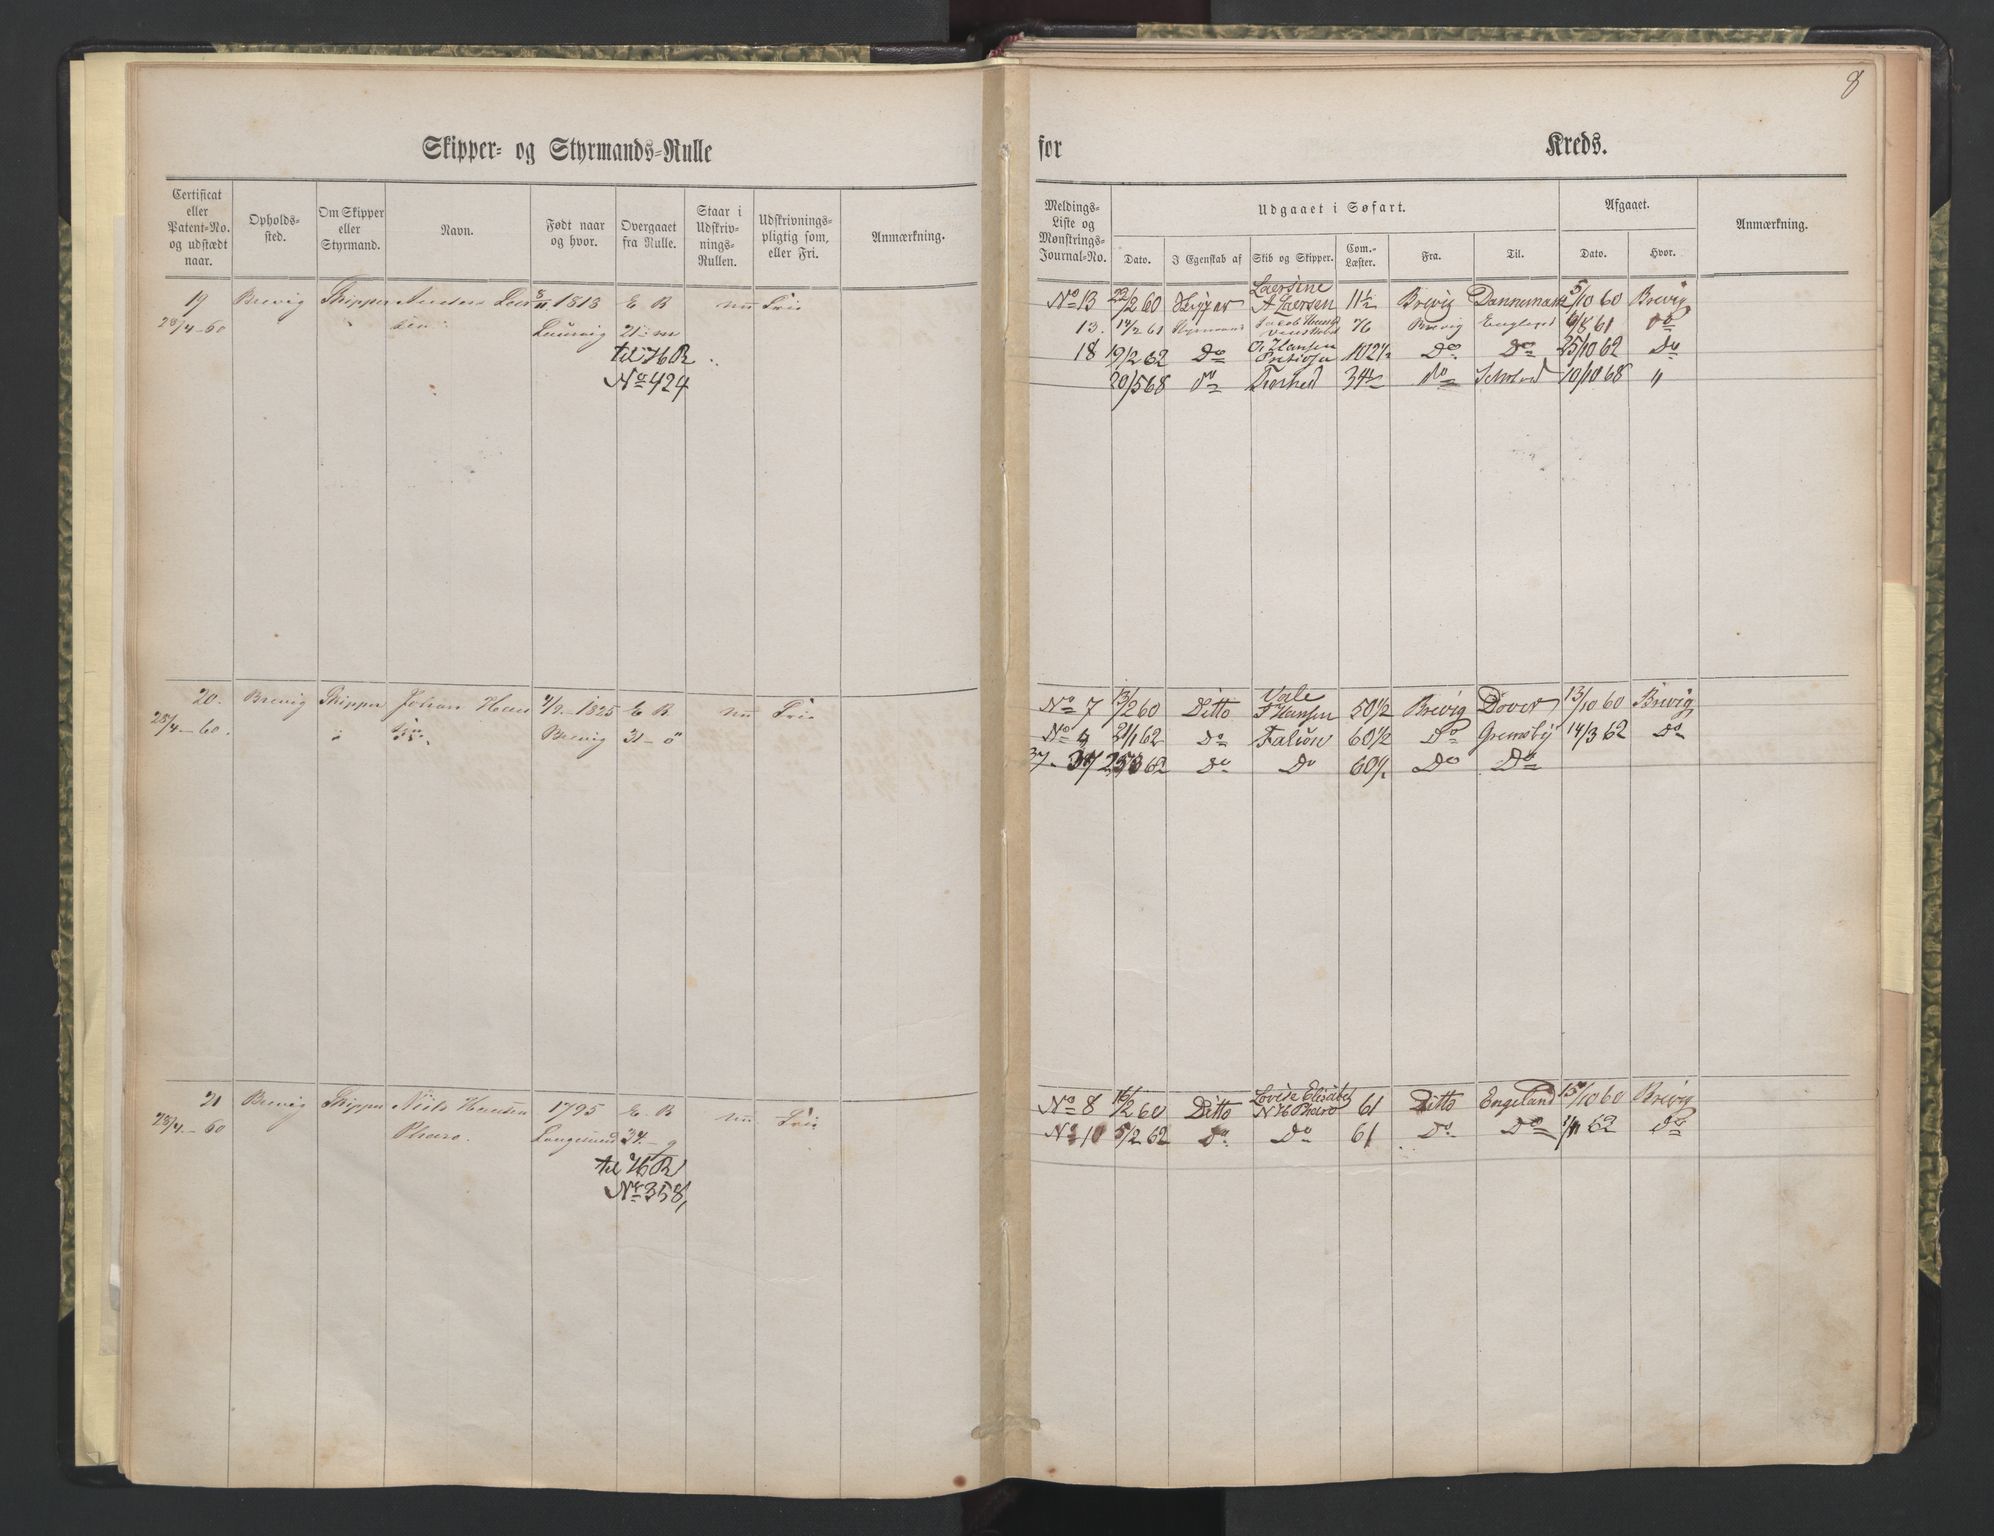 8
Skipper- og Styrmands-Rulle
for Kreds.
Certificat eller Patent-No. og udstædt naar.
Opholdssted.
Om Skipper eller Styrmand.
Navn.
Født naar og hvor.
Overgaaet fra Rulle.
Staar i Udskrivnings-Rullen.
Udskrivningspligtig som, eller Fri.
Anmærkning.
Meldings-Liste og Mønstrings-Journal-No.
Udgaaet i Søfart.
Dato. I Egenskab af Skib og Skipper. Com.-Læster. Fra. Til.
Afgaaet.
Dato. Hvor.
Anmærkning.
19 Brevig Skipper Anders Lar 8/11 1818 E R nu Fri
28/4-60 sen Laurvig 21
til HR
No 424
No 13 22/2 60 Skipper Laersine 11½ Brevig Dannemark 5/10 60 Brevig
A Laersen
13. 14/2 61 76 Brevig England 9/8 61 Do
18 19/2 62 Do O. Hansen 102½ Do Do 25/10 62 Do
20/5 68 do 34½ do 10/10 68 "
20. Brevig Skipper Johan Han 1825 E R nu Fri
28/4-60. Brevig 31-ö
No 7 13/2 60 Ditto Vale 50½ Brevig Dover 13/10 60 Brevig
Hansen
No 4 21/1 62 Do Falion 60½ Do Gremsby 14/3 62 Do
37. Do Do 60½ Do Do
21 Brevig Skipper Niels Hansen 1795 E. R nu Fri
28/4-60 Pharo. Langesund 34-9
til HR
No 358,
No 8 16/2 60 Ditto Lovise Elisabet 61 Ditto Engeland 15/10 60 Brevig
N H Pharo
No 10 5/2 62 Do Do 61 Do Do 1/11 62 Do